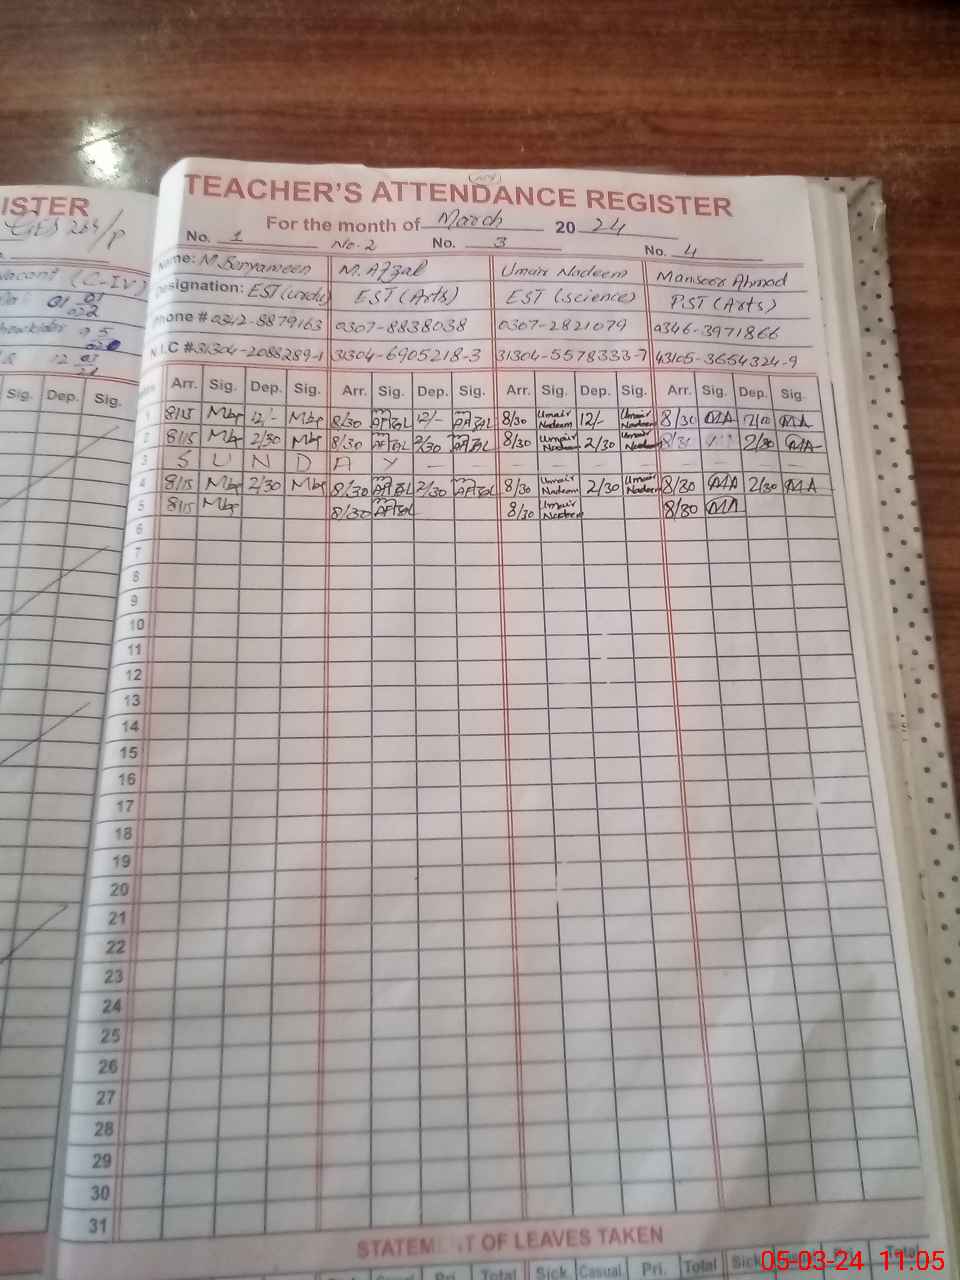 ISTER
TEACHER'S ATTENDANCE REGISTER
For the month of March 2024
No. 1 No. 2 No. 3 No. 4
Name: M. Benyameen M. Afzal Umair Nadeem Manseer Ahmad
Designation: EST (urdu) EST (Arts) EST (science) P.ST (Arts)
Phone # 0342-8879163 0307-8838038 0307-2821079 0346-3971866
N.I.C # 31304-2088289-1 31304-6905218-3 31304-5578333-7 43105-3654324-9
Sig. Dep. Sig.
Arr. Sig. Dep. Sig. Arr. Sig. Dep. Sig. Arr. Sig. Dep. Sig. Arr. Sig. Dep. Sig.
1 8/15 12/- 8/30 Afzal 12/- Afzal 8/30 Umair Nadeem 12/- Umair Nadeem 8/30 MA 12/00 MA
2 8/15 2/30 8/30 Afzal 2/30 Afzal 8/30 Umair Nadeem 2/30 Umair Nadeem 8/30 2/30 MA
3 S U N D A Y
4 8/15 2/30 8/30 Afzal 2/30 Afzal 8/30 Umair Nadeem 2/30 Umair Nadeem 8/30 MA 2/30 MA
5 8/15 8/30 Afzal 8/30 Umair Nadeem 8/30 MA
6
7
8
9
10
11
12
13
14
15
16
17
18
19
20
21
22
23
24
25
26
27
28
29
30
31
STATEMENT OF LEAVES TAKEN
Pri. Total Sick Casual Pri. Total Sick Total
05-03-24 11.05